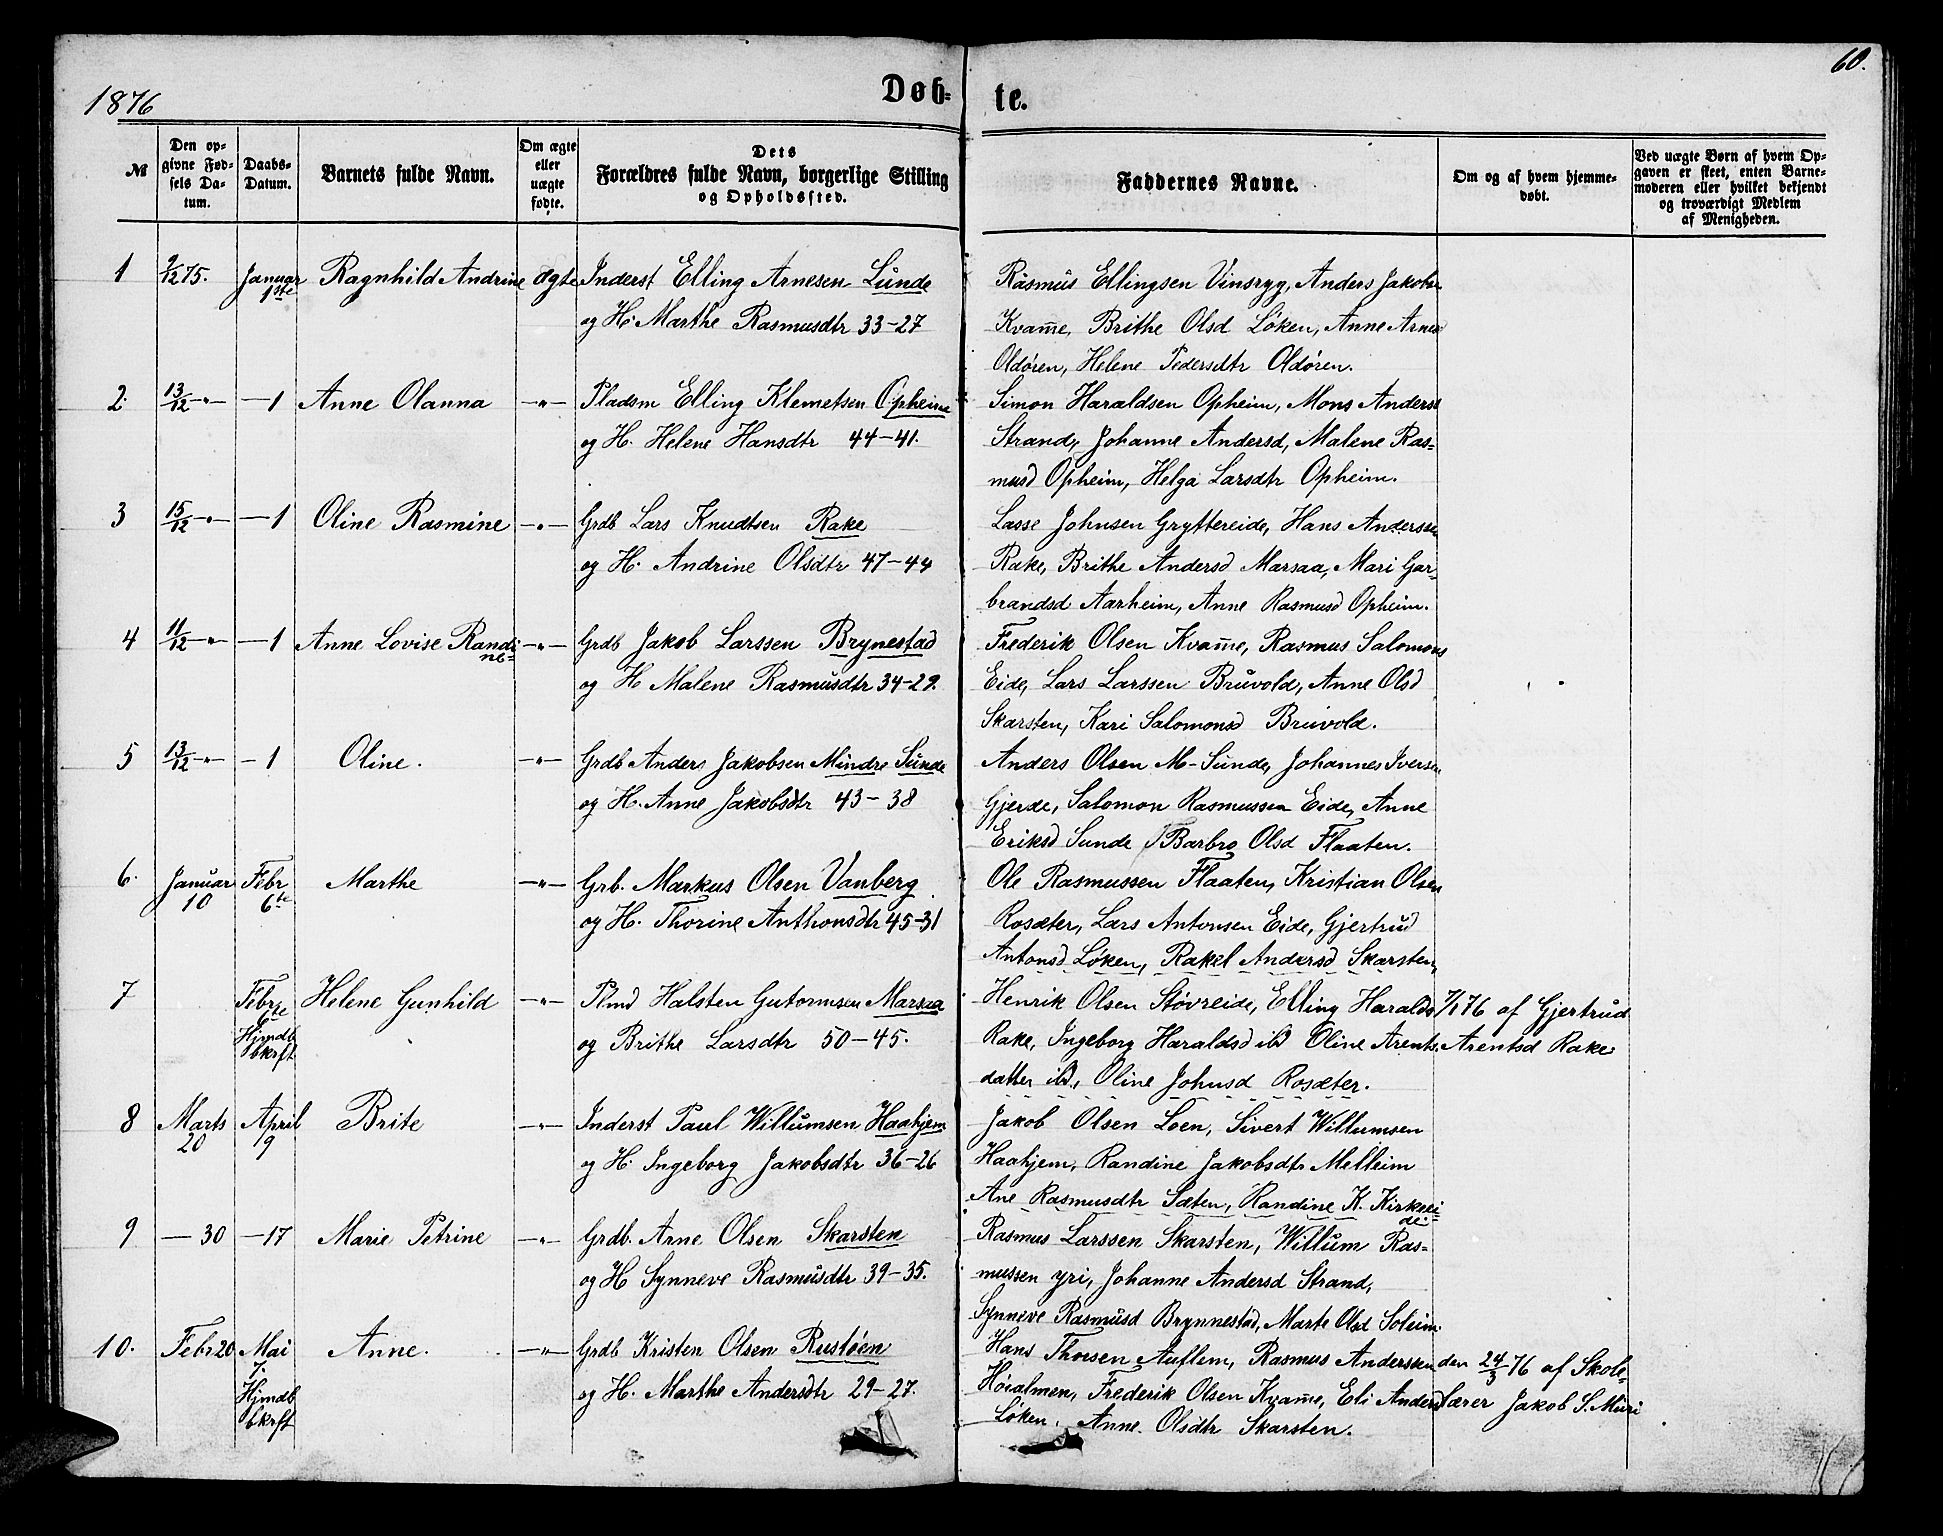 1876
Døb-
te.
60.
№
Den op-
givne Fød-
sels Da-
tum.
Daabs-
Datum.
Barnets fulde Navn.
Om ægte
eller
uægte
fødte.
Dets
Forældres fulde Navn, borgerlige Stilling
og Opholdssted.
Faddernes Navne.
Om og af hvem hjemme-
døbt.
Ved uægte Børn af hvem Op-
gaven er skeet, enten Barne-
moderen eller hvilket bekjendt
og troværdigt Medlem
af Menigheden.
1 9/12 75. Januar 1ste Ragnhild Andrine ægte Inderst Elling Arnesen Lunde
og H. Marthe Rasmusdtr 33-27
Rasmus Ellingsen Vinsryg, Anders Jakobsen
Kvam̅e, Brithe Olsd Løken, Anne Arnesd
Oldøren, Helene Pedersdtr Oldøren.
2. 13/12 -"- -1 Anne Olanna -"- Pladsm Elling Klemetsen Opheim
og H. Helene Hansdtr 44-41.
Simon Haraldsen Opheim, Mons Anders
Strand, Johanne Andersd, Malene Ras-
musd Opheim, Helga Larsdtr Opheim.
3 15/12 -"- -1 Oline Rasmine -"- Grdb Lars Knudtsen Rake
og H. Andrine Olsdtr 47-44
Lasse Johnsen Gryttereide, Hans Anderssen
Rake, Brithe Andersd Marsaa, Mari Gar-
brandsd Aarheim, Anne Rasmusd Opheim.
4 11/12 -"- -1 Anne Lovise Randi
ne- -"- Grdb Jakob Larssen Brynestad
og H Malene Rasmusdtr 34-29.
Frederik Olsen Kvam̅e, Rasmus Salomons
Eide, Lars Larssen Bruvold, Anne Olsd
Skarsten, Kari Salomonsd Bruvold.
5 13/12 -"- -1 Oline. -"- Grdb Anders Jakobsen Mindre Sunde
og H. Anne Jakobsdtr 43-38
Anders Olsen M-Sunde, Johannes Iversen
Gjerde, Salomon Rasmussen Eide, Anne
Eriksd Sunde, Barbro Olsd Flaaten.
6. Januar 10 Febr 6te Marthe -"- Grb. Markus Olsen Vanberg
og H. Thorine Anthonsdtr 45-31
Ole Rasmussen Flaaten, Kristian Olsen
Rosæter, Lars Antonsen Eide, Gjertrud
Antonsd Løken, Rakel Andersd Skarsten,
7 Febr 6te
Hjmdb
bkrft Helene Gunhild -"- Plmd Halsten Gutormsen Marsaa
og Brithe Larsdtr 50-45.
Henrik Olsen Støvreide, Elling Haralds
Rake, Ingeborg Haraldsd ibd Oline Arents
datter ibd, Oline Johnsd Rosæter.
7/1 76 af Gjertrud
Arentsd Rake
8 Marts 20 April 9 Brite -"- Inderst Paul Willumsen Haahjem
og H. Ingeborg Jakobsdtr 36-26
Jakob Olsen Loen, Sivert Willumsen
Haahjem, Randine Jakobsdtr Melheim
Ane Rasmusdtr Sæten, Randine K. Kirkei-
de.
9 -30 -17 Marie Petrine -"- Grdb. Arne Olsen Skarsten
og H Synneve Rasmusdtr 39-35.
Rasmus Larssen Skarsten, Willum Ras-
mussen yri, Johanne Andersd Strand,
Synneve Rasmusd Brynnestad, Marte Olsd Soleim.
10. Febr 20 Mai 7.
Hjmdb
bkrft Anne. -"- Grdb Kristen Olsen Rustøen
og H. Marthe Andersdtr 29-27.
Hans Thorsen Auflem, Rasmus Anderssen
Høialmen, Frederik Olsen Kvam̅e, Eli Andersd
Løken. Anne. Olsdtr Skarsten.
den 24/3 76 af Skole-
lærer Jakob S. Muri